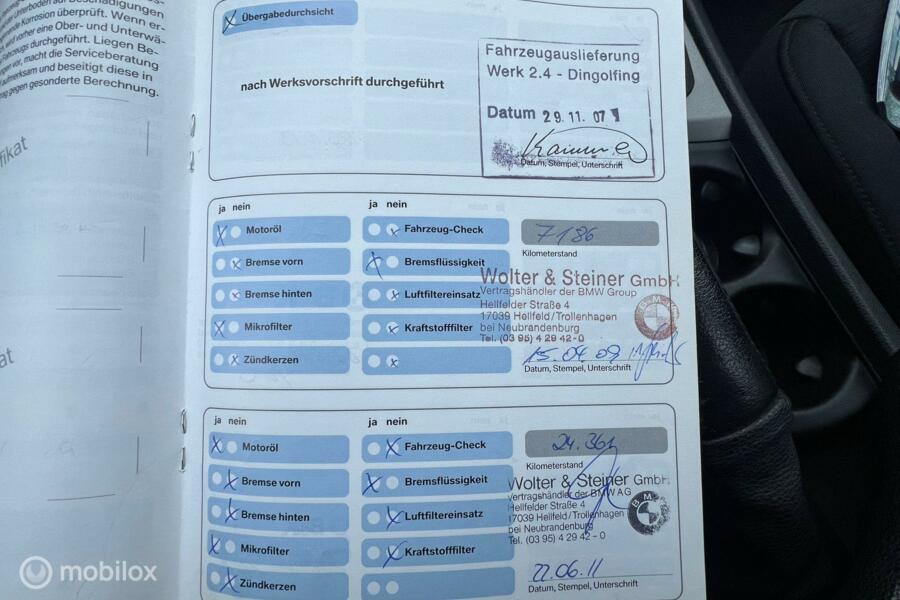 Unterboden auf Beschädigungen
Korrosion überprüft. Wenn er-
wird vorher eine Ober- und Unterwä-
Fahrzeugs durchgeführt. Liegen Be-
vor, macht die Serviceberatung
aufmerksam und beseitigt diese in
gegen gesonderte Berechnung.
Übergabedurchsicht
nach Werksvorschrift durchgeführt
Fahrzeugauslieferung
Werk 2.4 - Dingolfing
Datum 29.11.07
Datum, Stempel, Unterschrift
ja nein
ja nein
Motoröl
Fahrzeug-Check
7186
Kilometerstand
Bremse vorn
Bremsflüssigkeit
Bremse hinten
Luftfiltereinsatz
Mikrofilter
Kraftstofffilter
Zündkerzen
Wolter & Steiner GmbH
Vertragshändler der BMW Group
Hellfelder Straße 4
17039 Hellfeld/Trollenhagen
bei Neubrandenburg
Tel. (03 95) 4 29 42-0
BMW
15.04.09
Datum, Stempel, Unterschrift
ja nein
ja nein
Motoröl
Fahrzeug-Check
24.361
Kilometerstand
Bremse vorn
Bremsflüssigkeit
Bremse hinten
Luftfiltereinsatz
Mikrofilter
Kraftstofffilter
Zündkerzen
Wolter & Steiner GmbH
Vertragshändler der BMW AG
Hellfelder Straße 4
17039 Hellfeld/Trollenhagen
bei Neubrandenburg
Tel. (03 95) 4 29 42-0
BMW
22.06.11
Datum, Stempel, Unterschrift
mobilox